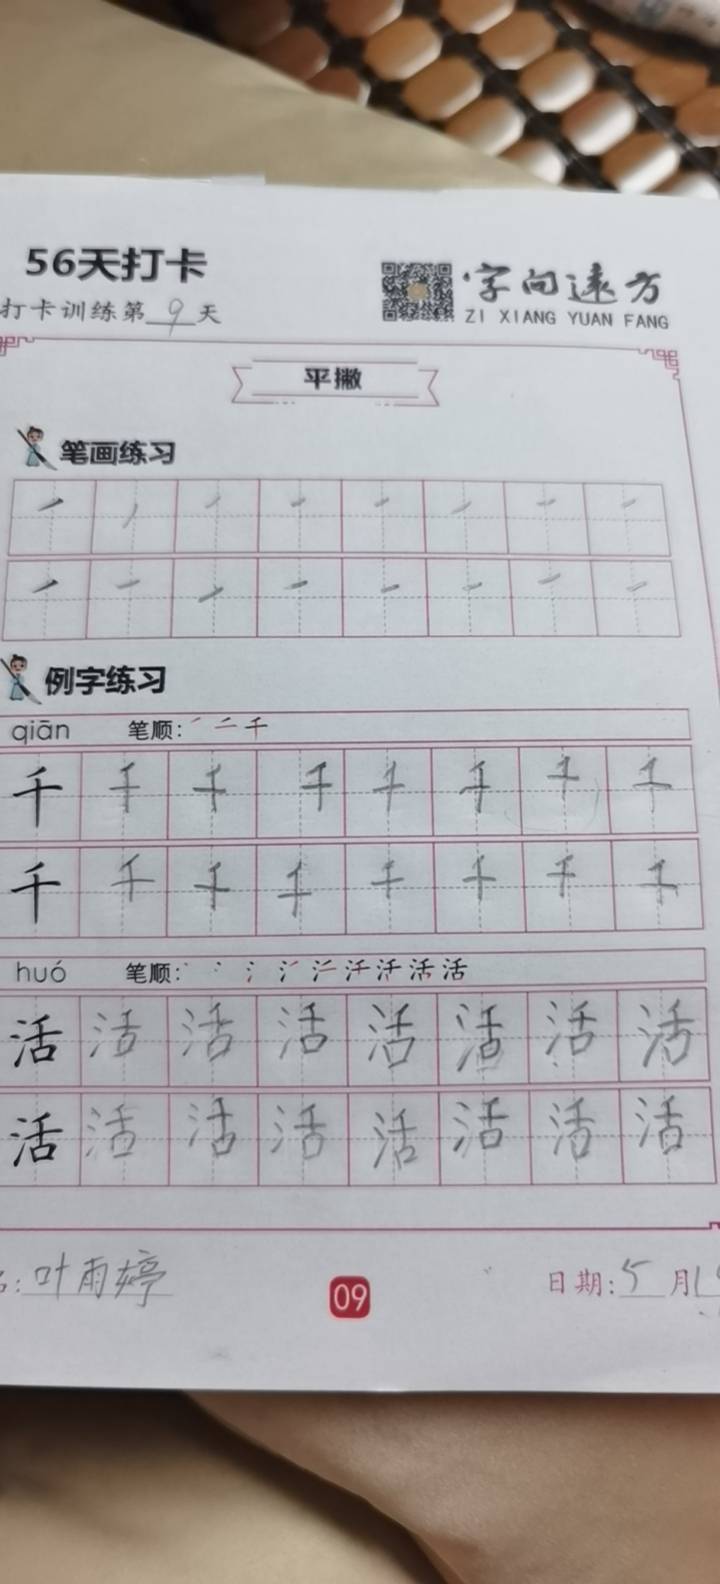 56天打卡
字向远方
打卡训练第9天
ZI XIANG YUAN FANG
平撇
笔画练习
例字练习
qiān 笔顺:
千 千 千 千 千 千 千 千
千 千 千 千 千 千 千 千
huó 笔顺:
活 活 活 活 活 活 活 活
活 活 活 活 活 活 活 活
名:叶雨婷
09
日期:5月